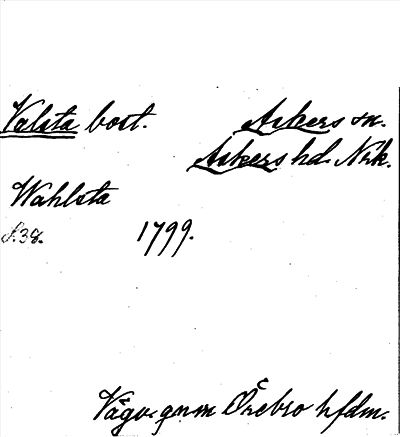 Valsta bost. Askers sn.
Askers hd. Nrk.
Wahlsta
S.38. 1799.
Vägv. gnm Örebro hfdm.